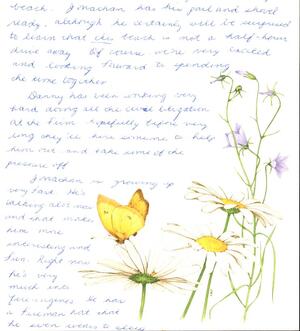 beach. Jonathan has his pail and shovel
ready, although he certainly will be surprised
to learn that this beach is not a half-hour
drive away. Of course we're very excited
and looking forward to spending
the time together.
Danny has been working very
hard doing all the civil litigation
at the firm. Hopefully before very
long they'll hire someone to help
him out and take some of the
pressure off.
Jonathan is growing up
very fast. He's
talking a lot now
and that makes
him more
interesting and
fun. Right now
he's very
much into
fire engines. He has
a fireman hat that
he even wears to sleep